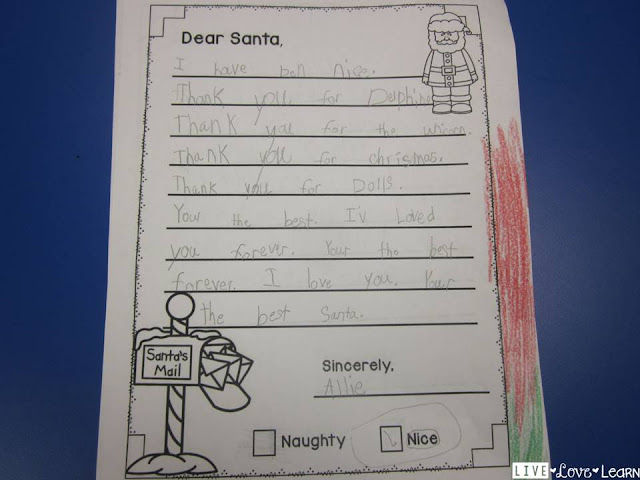 Dear Santa,
I have ben nise.
Thank you for Dolphins
Thank you for the unicorn.
Thank you for christmas.
Thank you for Dolls.
Your the best. I'v Loved
you forever. Your the best
forever. I love you. Your
the best Santa.
Santa's
Mail
Sincerely,
Allie
Naughty Nice
LIVE♥Love♥Learn